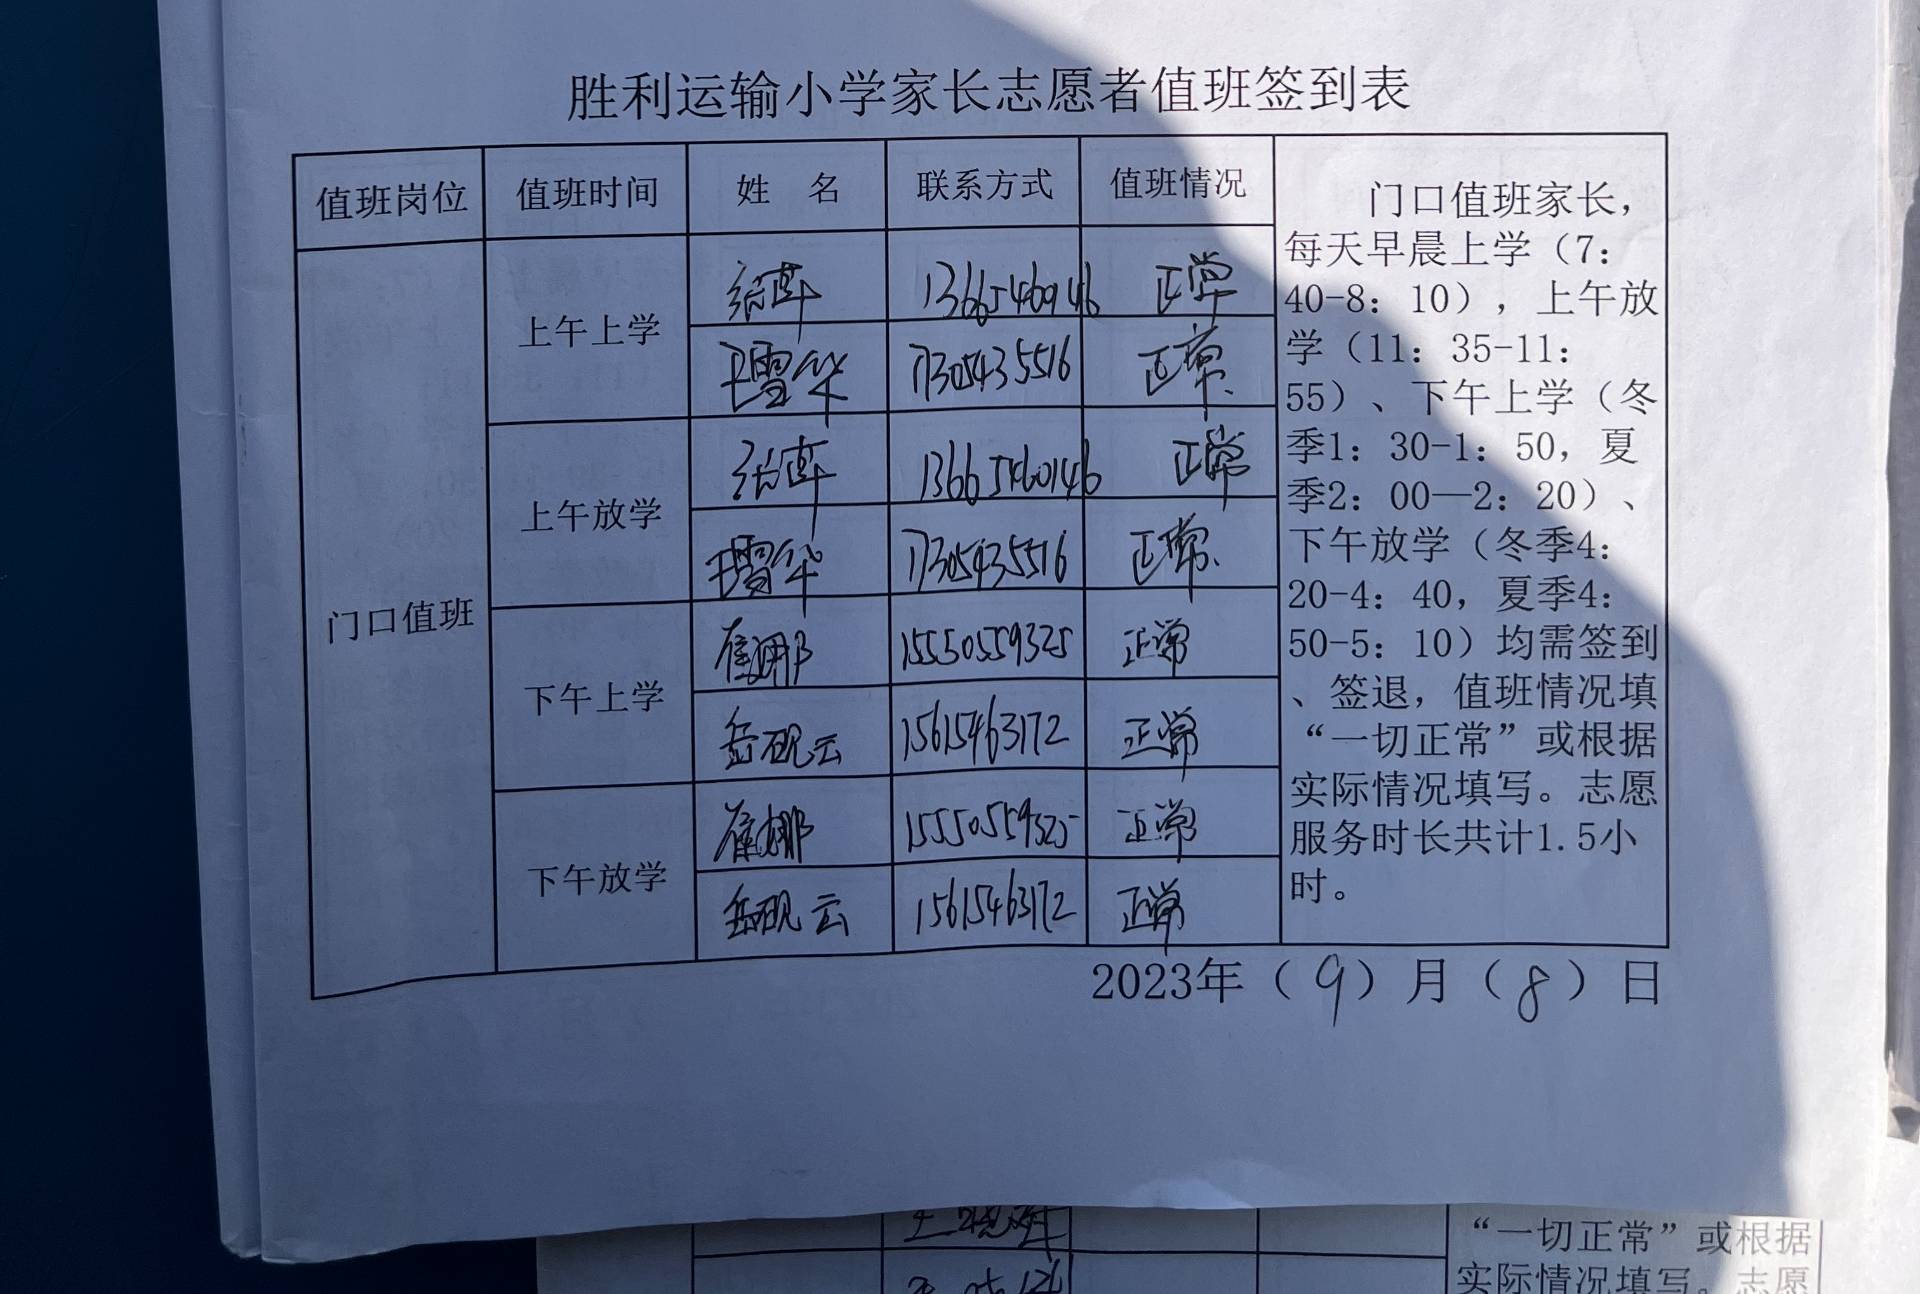 胜利运输小学家长志愿者值班签到表
值班岗位 值班时间 姓 名 联系方式 值班情况
门口值班
上午上学
正常
王雪华 17305435516 正常
上午放学
13665460146 正常
王雪华 17305435516 正常
下午上学
崔娜 15550559325 正常
岳砚云 15615463172 正常
下午放学
崔娜 15550559325 正常
岳砚云 15615463172 正常
门口值班家长，
每天早晨上学（7：
40-8：10），上午放
学（11：35-11：
55）、下午上学（冬
季1：30-1：50，夏
季2：00—2：20）、
下午放学（冬季4：
20-4：40，夏季4：
50-5：10）均需签到
、签退，值班情况填
“一切正常”或根据
实际情况填写。志愿
服务时长共计1.5小
时。
2023年（9）月（8）日
“一切正常”或根据
实际情况填写。志愿